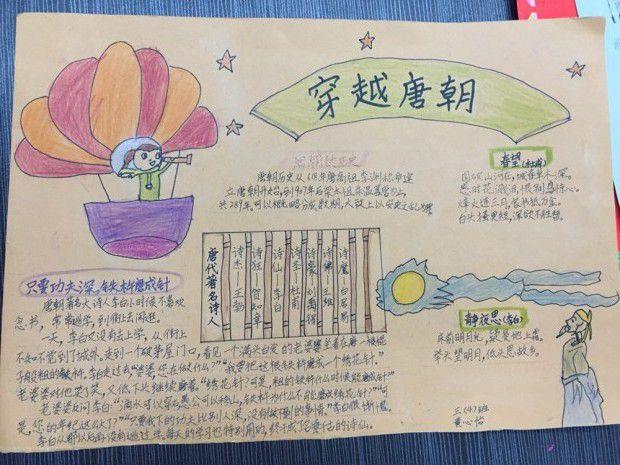 穿越唐朝
唐朝的历史
唐朝历史从618年唐高祖李渊称帝建
立唐朝开始,到907年后梁太祖朱温篡唐为止,
共289年。可以粗略分成数期,大致上以安史之乱为界
春望(杜甫)
国破山河在,城春草木深。
感时花溅泪,恨别鸟惊心。
烽火连三月,家书抵万金。
白头搔更短,浑欲不胜簪。
唐代著名诗人
诗杰 王勃
诗狂 贺知章
诗仙 李白
诗圣 杜甫
诗豪 刘禹锡
诗佛 王维
诗魔 白居易
只要功夫深,铁杵磨成针
唐朝著名大诗人李白小时候不喜欢
念书,常常逃学,到街上去闲逛。
一天,李白又没有去上学,从街上
不知不觉到了城外。走到一个破茅屋门口,看见一个满头白发的老婆婆坐着在磨一根棍
子般粗的铁杵。李白走过去,"婆婆,您在做什么?""我要把这根铁杵磨成一个绣花针"。
老婆婆对他笑了笑,又低下头继续磨着。"绣花针?可是,粗的铁杵什么时候能磨成针?"
老婆婆反问李白:"滴水可以穿石,愚公可以移山,铁杵为什么不能磨成绣花针?""可
是,您的年纪这么大了?""只要我下的功夫比别人深,没有做不到的事情。"李白很惭愧。
李白从那以后再没有逃过学。每天的学习也特别用功,终于成了名垂千古的诗仙。
静夜思(李白)
床前明月光,疑是地上霜。
举头望明月,低头思故乡。
三(4)班
黄心怡